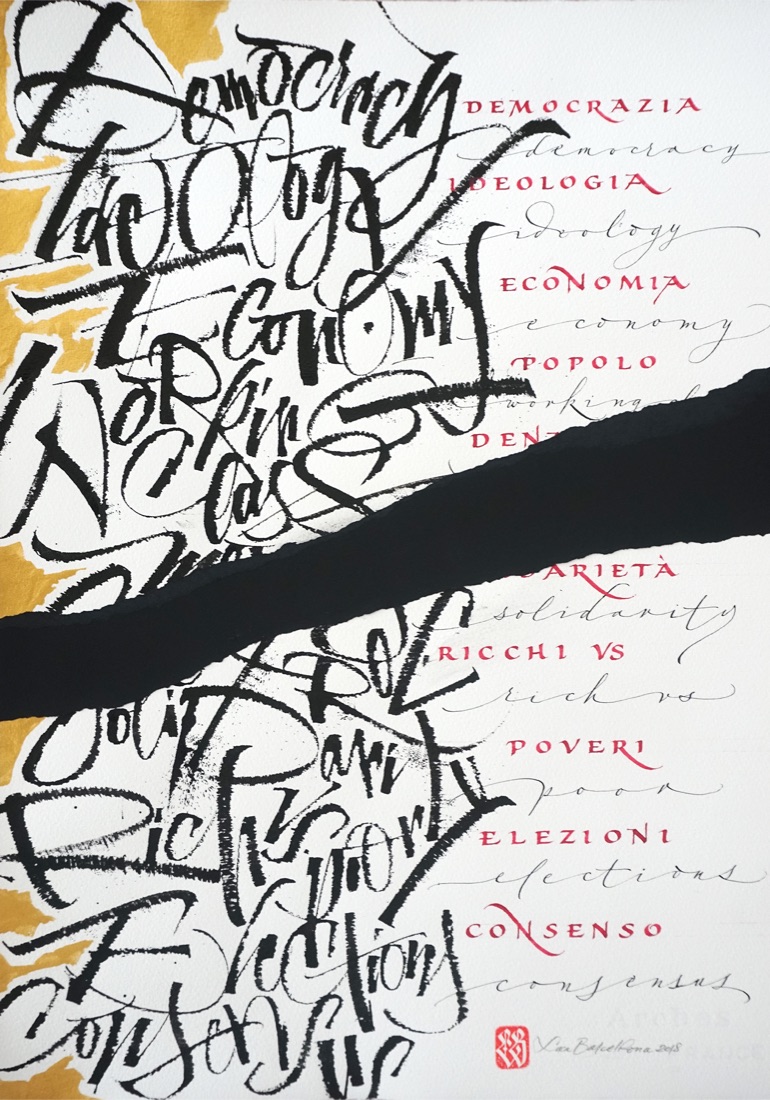 Democracy
Ideology
Economy
Working
Class
Solidarity
Rich vs
poor
Elections
Consensus
DEMOCRAZIA
democracy
IDEOLOGIA
ideology
ECONOMIA
economy
POPOLO
working
DEN
ARIETÀ
solidarity
RICCHI VS
rich vs
POVERI
poor
ELEZIONI
elections
CONSENSO
consensus
Arches
FRANCE
2018